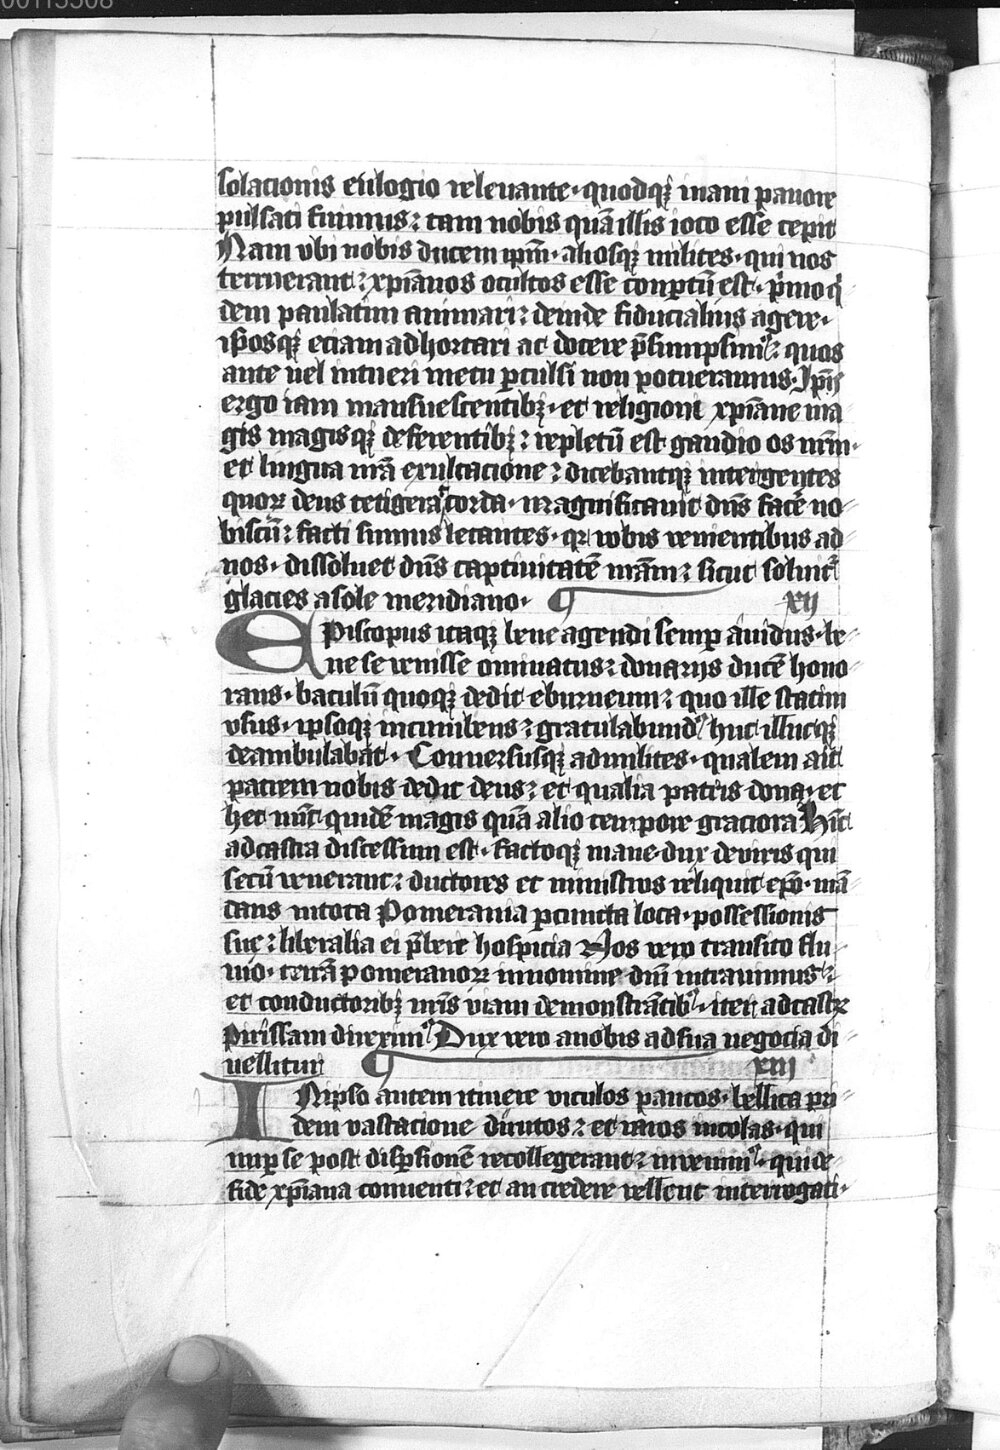 00115508
solacionis eulogio releuante· quodqꝫ inani pauore
pulsati fuimus: tam nobis quā illis ioco esse cepit
Nam vbi nobis ducem ipm̄· aliosqꝫ milites· qui nos
terruerant: xp̄ianos ocultos esse conptū est· p̄mo q̇
dem paulatim animari: deinde fiducialius agere·
ip̄osqꝫ eciam adhortari ac docere p̄sumpsimꝰ: quos
ante uel intueri metu ꝑculsi non potueramus. Ip̄is
ergo iam mansuescentibꝫ· et religioni xp̄iane ma
gis magisqꝫ deferentibꝫ: repletū est gaudio os nr̄m·
et lingua nr̄a exultacione: dicebantqꝫ inter gentes
quoꝝ deus tetigerat corda· magnificauit dn̄s facē no
biscū: facti sumus letantes· qꝛ vobis venientibus ad
nos· dissoluet dn̄s captiuitatē nr̄am: sicut soluit̄
glacies a sole meridiano· xij
EPiscopus itaqꝫ bene agendi semꝑ auidus· be
ne se venisse ominatus: donarijs ducē hono
rans· baculū quoqꝫ dedit eburneum: quo ille statim
vsus· ipsoqꝫ incumbens: gratulabundꝰ huc illucqꝫ
deambulabat· Conuersusqꝫ ad milites· qualem ait
patrem nobis dedit deus: et qualia patris dona· et
hec nūc quidē magis quā alio tempore graciora Hinc
ad castra discessum est· factoqꝫ mane· dux de viris qui
secū venerant: ductores et ministros reliquit ep̄o· mā
dans in tota Pomerania ꝑ cuncta loca· possessionis
sue: liberalia ei p̄bere hospicia Nos vero transito flu
uio· terrā pomeranoꝝ in nomine dn̄i intrauimus:
et conductoribꝫ nr̄is viam demonstrātibꝰ· iter ad castꝝ
Pirissam direximꝰ Dux vero a nobis ad sua negocia di
uellitur xiij
INipso autem itinere viculos paucos· bellica pri
dem vastacione dirutos: et raros incolas· qui
nuꝑ se post disp̄sionē recollegerant: inuenimꝰ· qui de
fide xp̄iana conuenti: et an credere vellent interrogati·